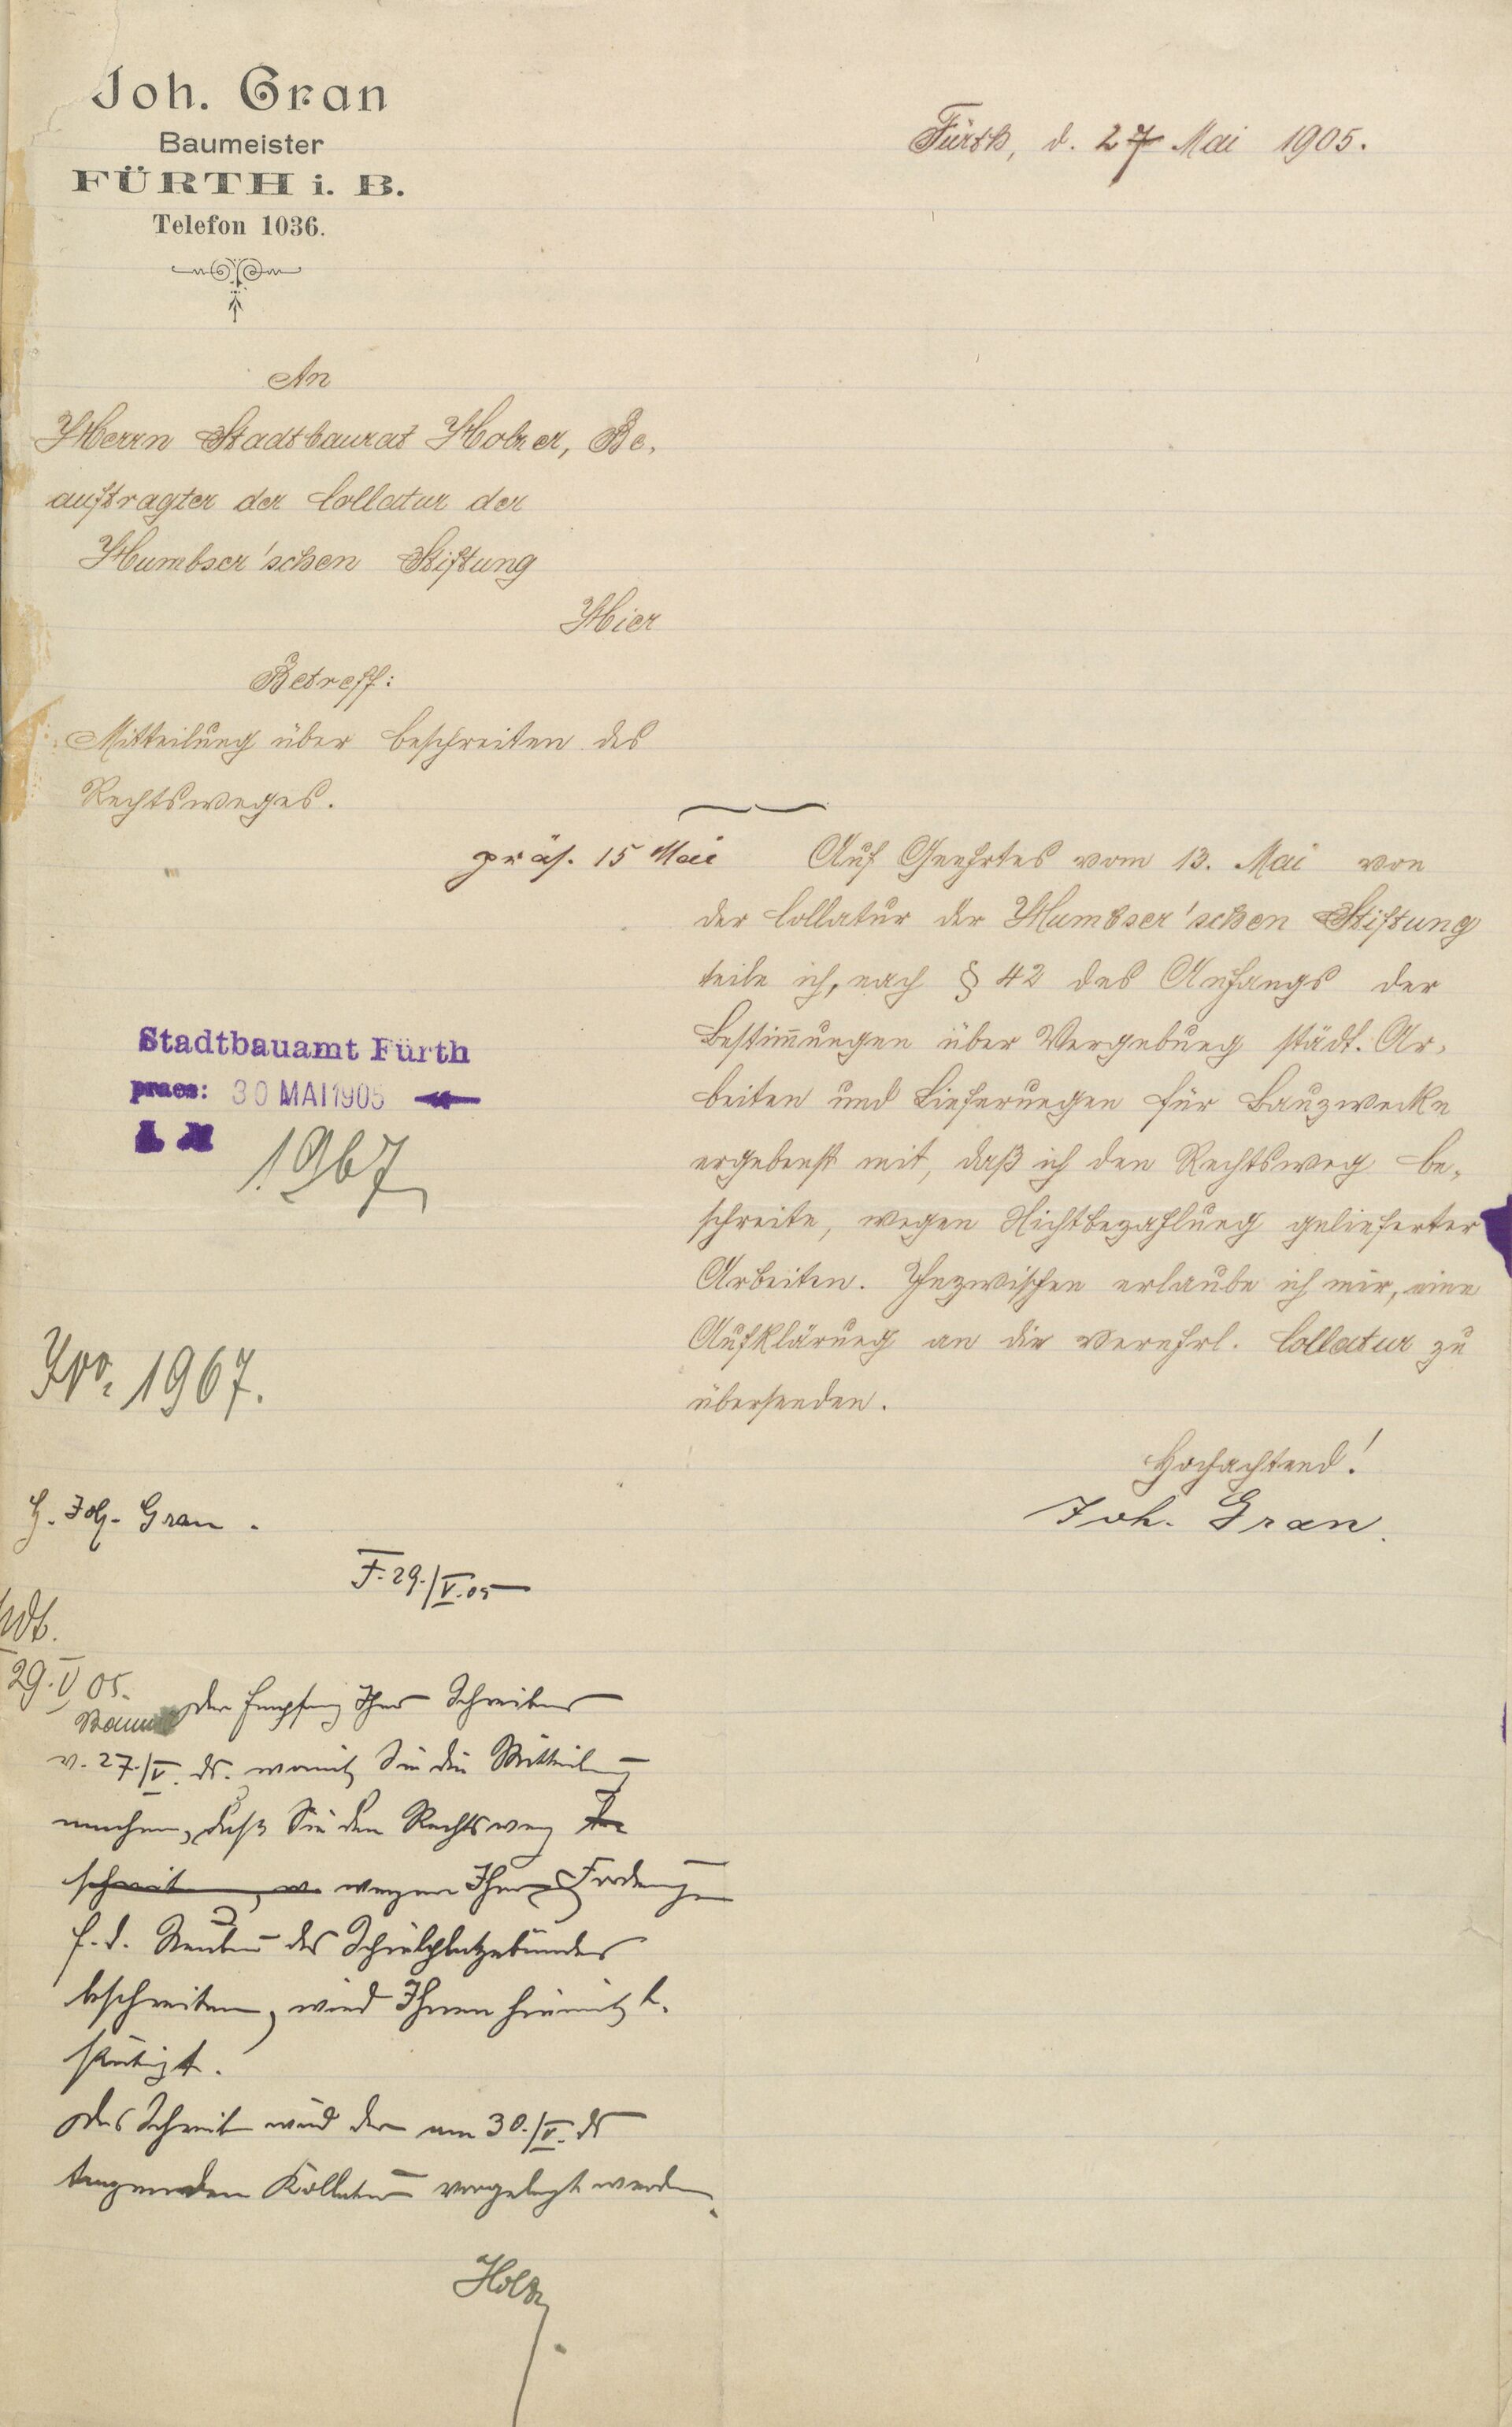 Joh. Gran
Baumeister
FÜRTH i. B.
Telefon 1036.
Fürth, d. 27 Mai 1905.
An
Herrn Stadtbaurat Holzer, Be-
auftragter der Collatur der
Humbser'schen Stiftung
Hier
Betreff:
Mitteilung über beschreiten des
Rechtsweges.
präs. 15 Mai
Auf Geehrtes vom 13. Mai von
der Collatur der Humbser'schen Stiftung
teile ich, nach § 42 des Anhangs der
Bestim̄ungen über Vergebung städt. Ar-
beiten und Lieferungen für Bauzwecke
ergebenst mit, daß ich den Rechtsweg be-
schreite, wegen Nichtbezahlung gelieferter
Arbeiten. Inzwischen erlaube ich mir, eine
Aufklärung an die verehrl. Collatur zu
übersenden.
Hochachtend!
Joh. Gran.
Stadtbauamt Fürth
praes: 30 MAI 1905
1967
No. 1967.
H. Joh. Gran.
F. 29./V. 05
29. V 05.
Der Empfang Ihres Schreibens
v. 27./V. ds. womit Sie die Mitteilung
machen, daß Sie den Rechtsweg be
schreiten, w wegen Ihrer Forderungen
f. d. Neubau des
beschreiten, wird Ihnen hiemit be-
stätigt.
Das Schreiben wird der am 30./V. ds
tagenden Kollatur vorgelegt werden.
Holzer